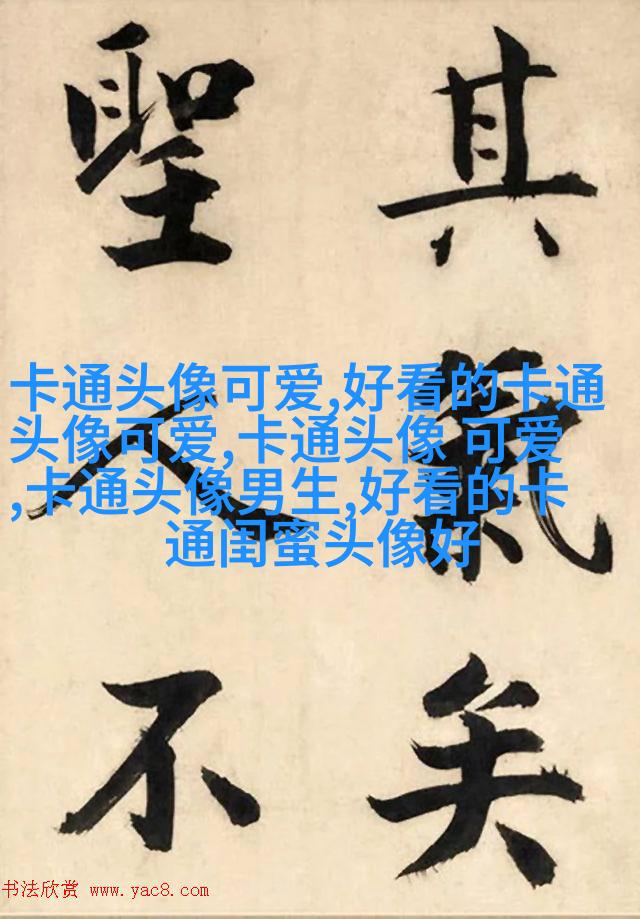 其氣矣
聖人不
卡通头像可爱,好看的卡通
头像可爱,卡通头像 可爱
,卡通头像男生,好看的卡
通闺蜜头像好
书法欣赏 www.yac8.com